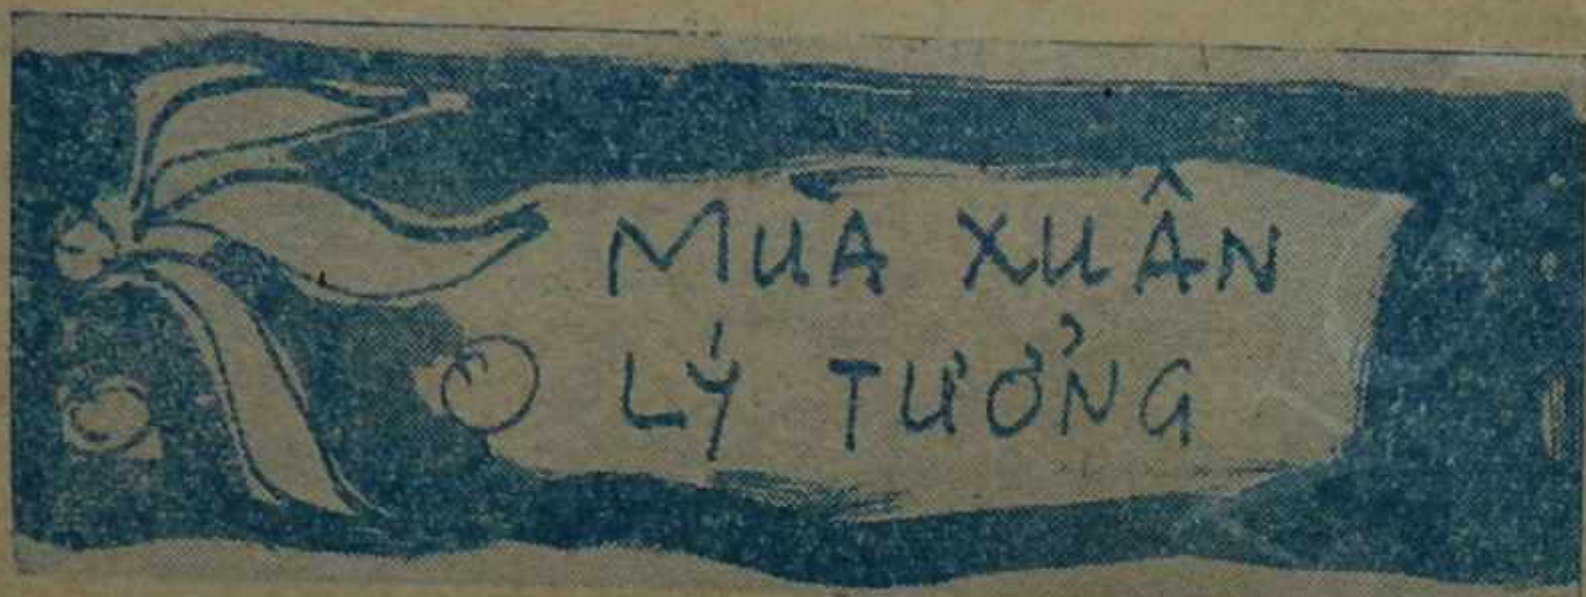 MÙA XUÂN
LÝ TƯỞNG